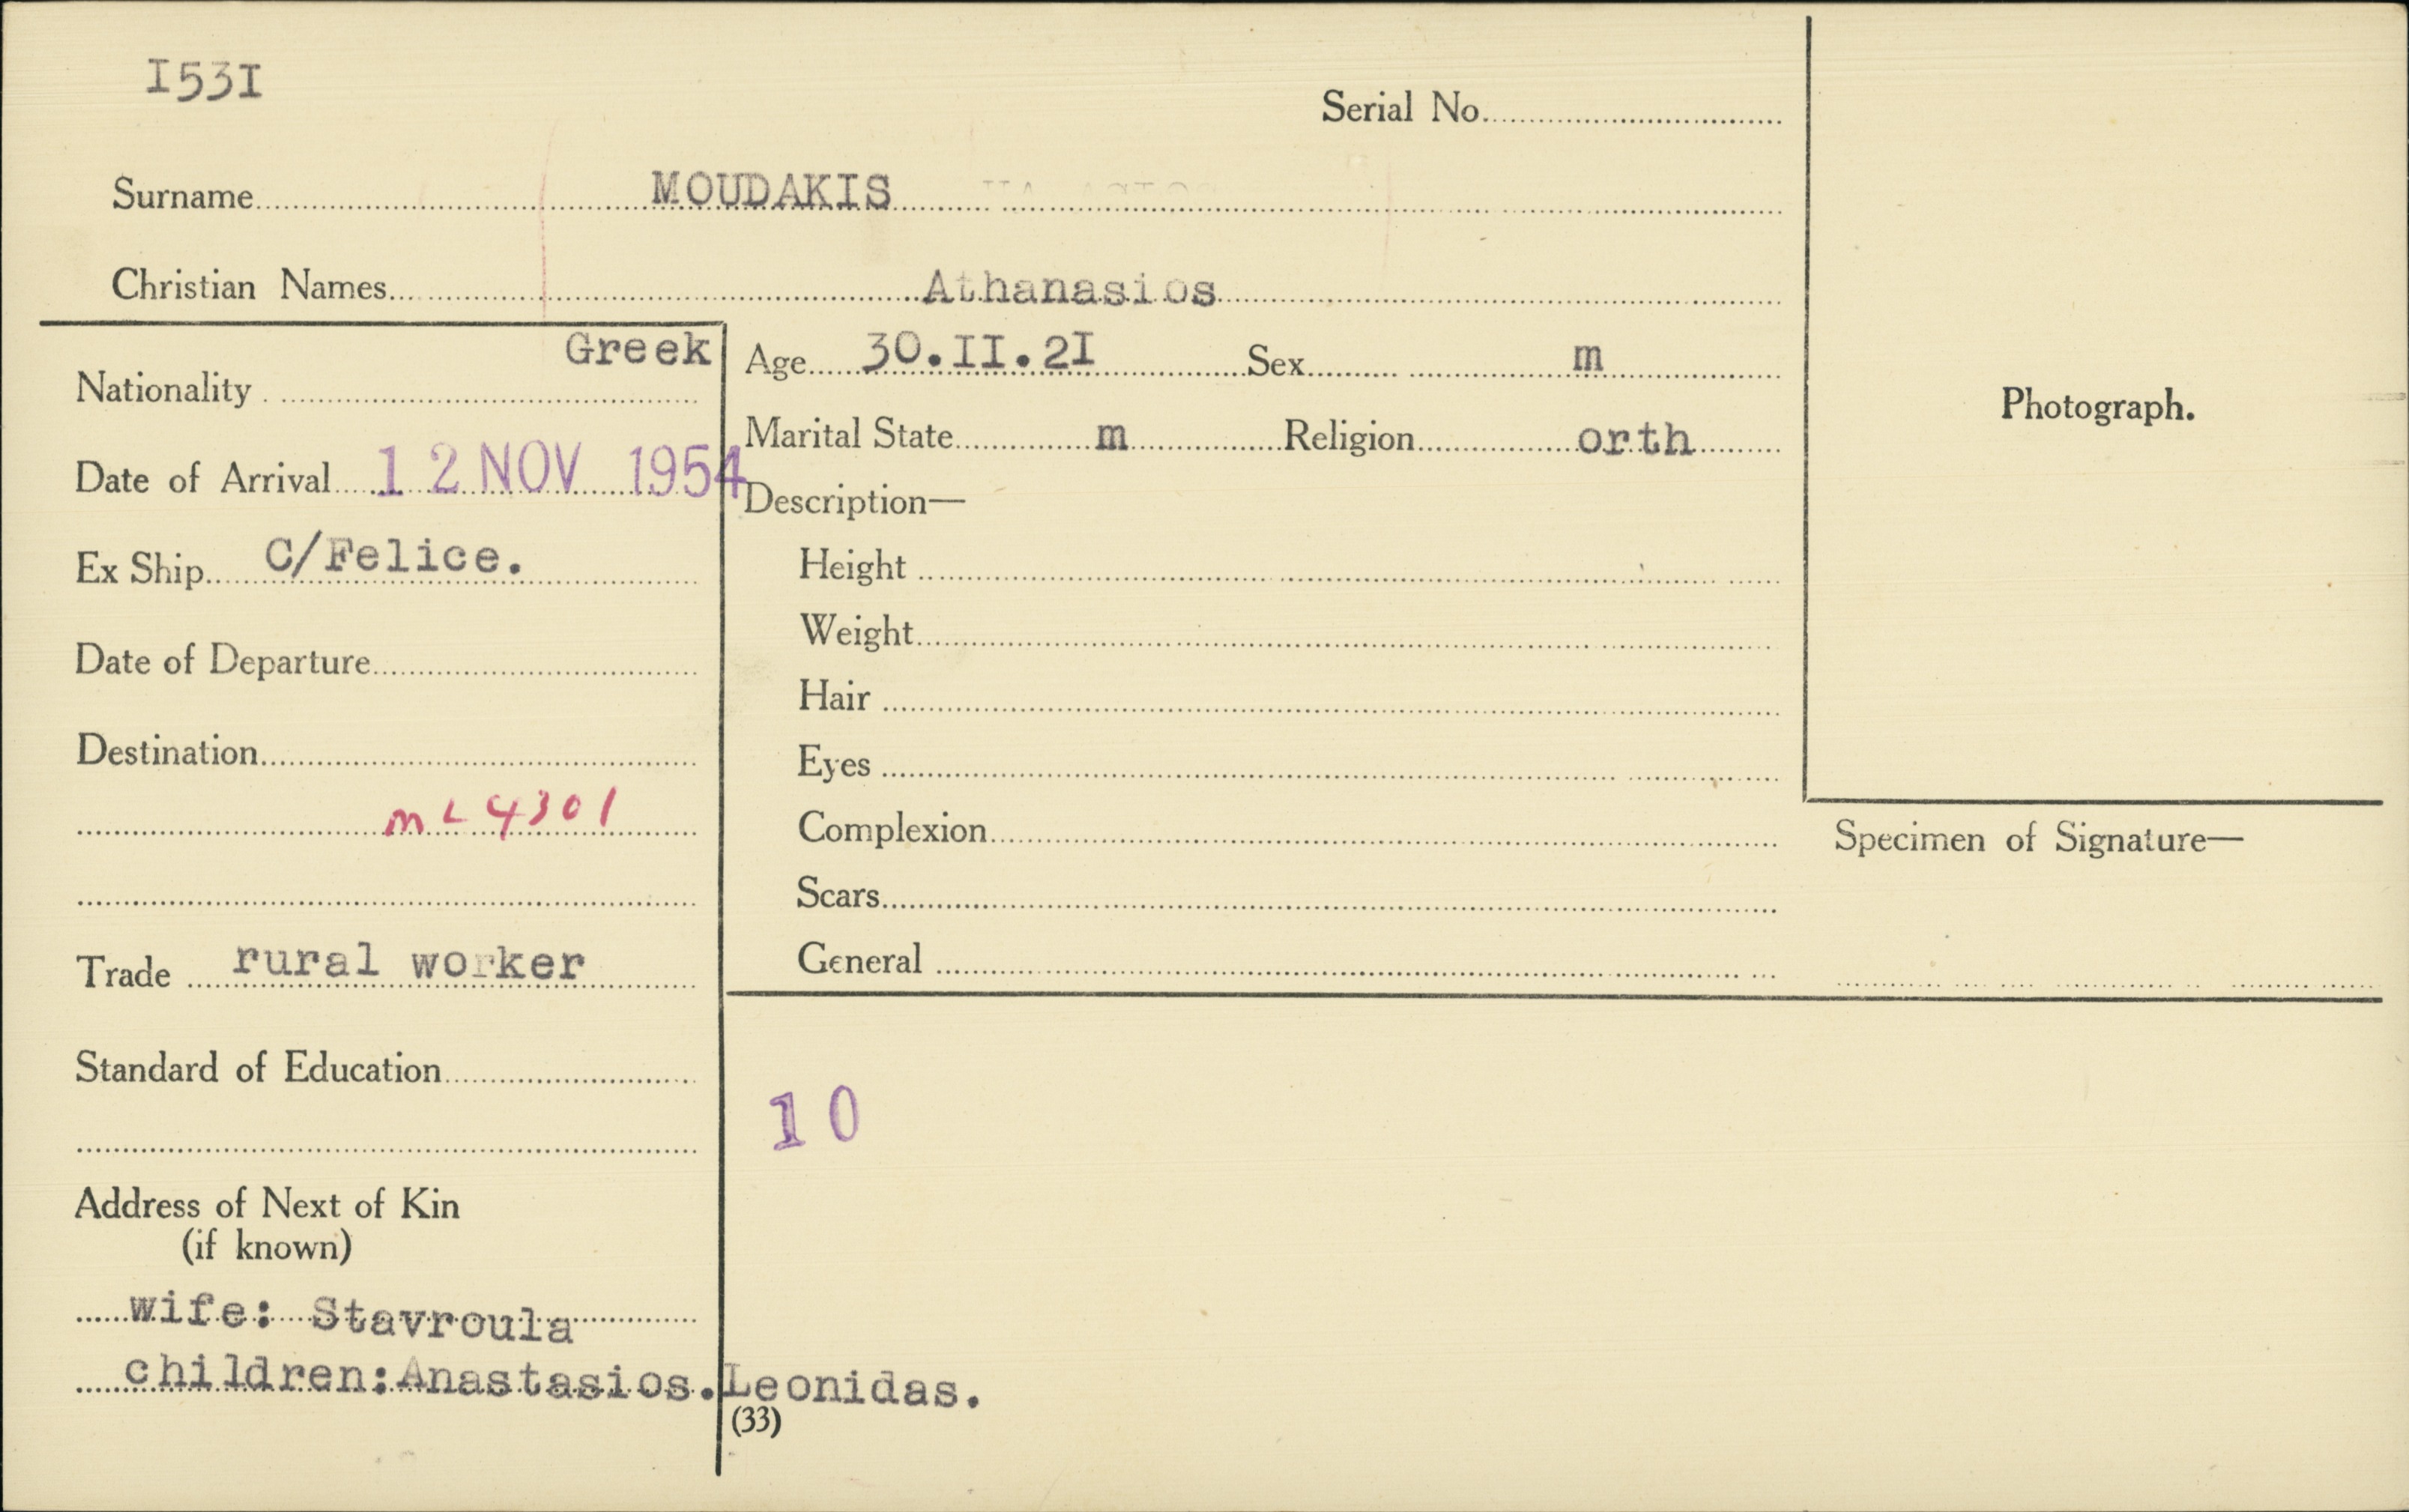 I53I
Serial No.
Surname MOUDAKIS
Christian Names Athanasios
Nationality Greek
Age 30.II.2I Sex m
Marital State m Religion orth
Date of Arrival 12 NOV 1954
Description—
Ex Ship C/Felice.
Height
Weight
Date of Departure
Hair
Destination
Eyes
mL4301
Complexion
Scars
Trade rural worker
General
Photograph.
Specimen of Signature—
Standard of Education
10
Address of Next of Kin
(if known)
wife: Stavroula
children:Anastasios.Leonidas.
(33)